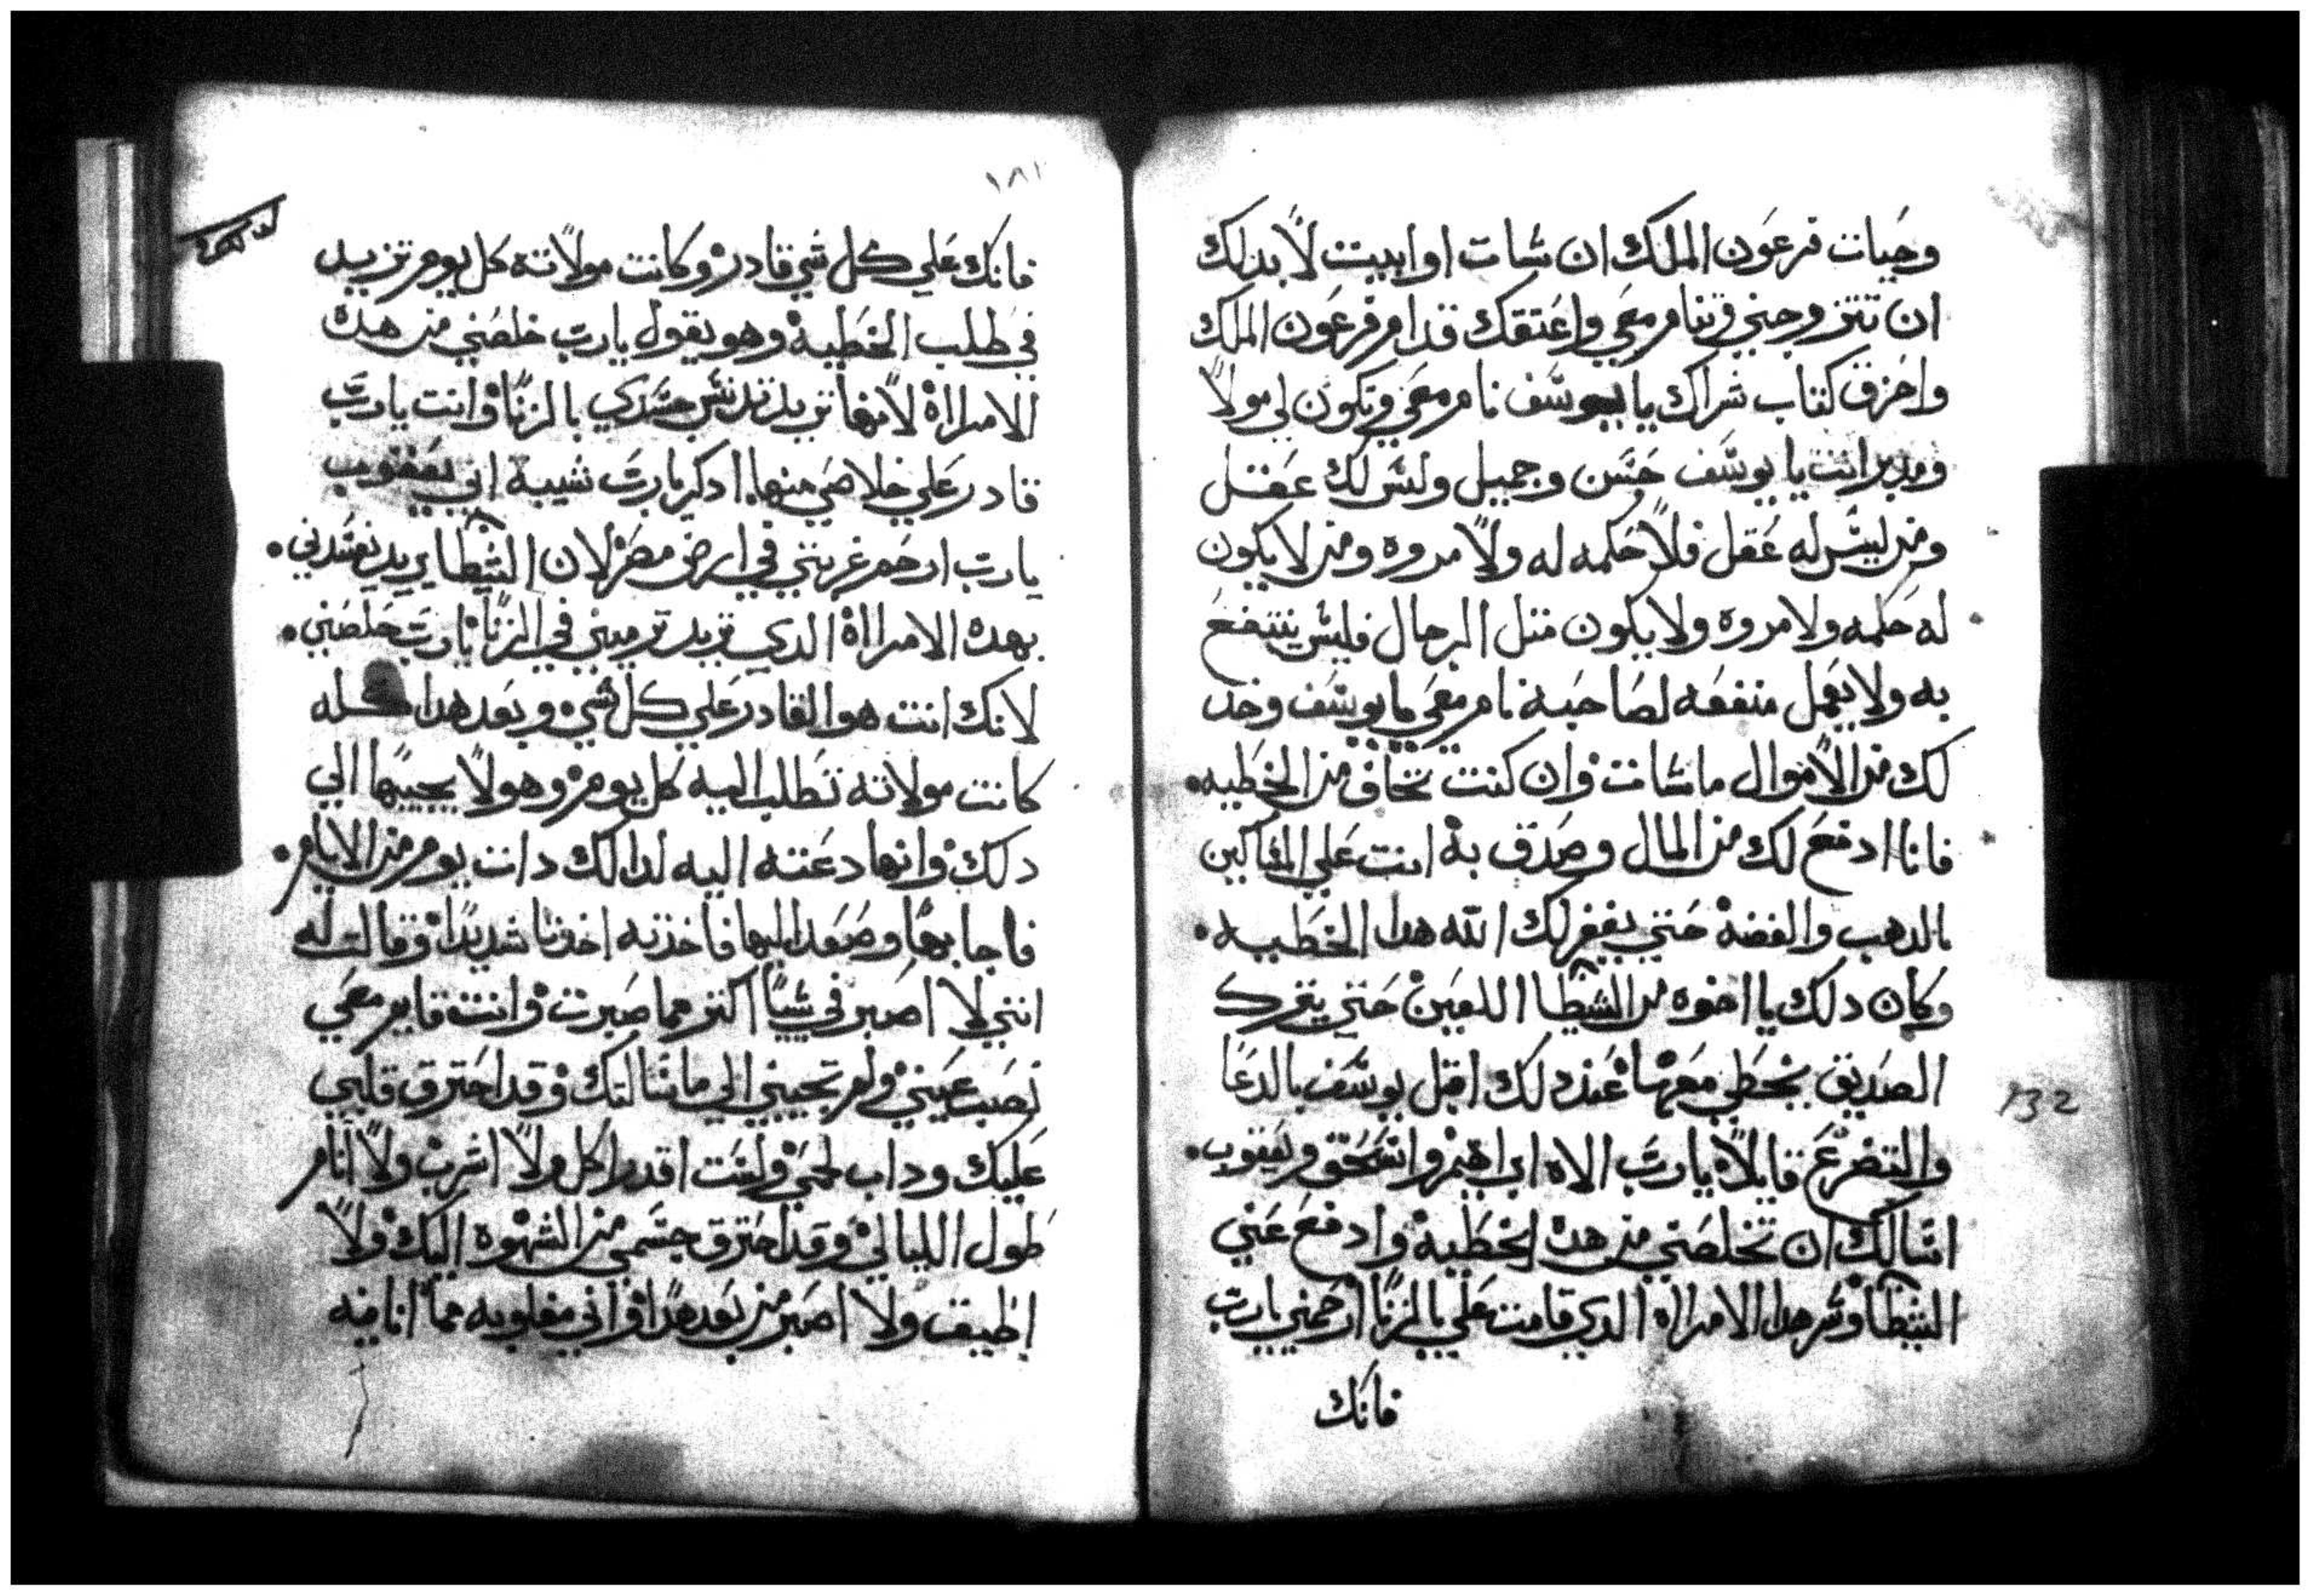 وحيات فرعون الملك ان شات او ابيت لا بدلك
ان تتزوجني وتنام معي واعتقك قدام فرعون الملك
واحزق كتاب شراك يا يوسف نام معي وتكون لي مولا
ومدبر انت يا يوسف حسن وجميل وليس لك عقل
ومن ليس له عقل فلا حكمه له ولا مروه ومن لا يكون
له حكمه ولا مروه ولا يكون متل الرجال فليس ينتفع
به ولا يعمل منفعه لصاحبه نام معي يا يوسف وخد
لك من الاموال ما شات وان كنت تخاف من الخطيه
فانا ادفع لك من المال وصدق به انت علي المساكين
بالدهب والفضة حتي يغفر لك الله هدا الخطيه
وكان دلك يا اخوه من الشيطا اللعين حتي يترك
الصديق يخطي معها عند دلك اقبل يوسف بالدعا
والتضرع قايلا يا رب الاه ابراهيم واسحق ويعقوب
اسالك ان تخلصني من هدة الخطية وادفع عني
الشيطا وشر هدا الامراه الدي قامت علي بالزنا ارحمني يا رب
فانك
١٨١
فانك علي كل شي قادر وكانت مولاتة كل يوم تزيد
في طلب الخطية وهو يقول يا رب خلصني من هدة
الامرااة لانها تريد تدنس جسدي بالزنا وانت يا رب
قادر علي خلاصي منها ادكر يا رب شيبة ابي يعقوب
يا رب ارحم غربتي في ارض مصر لان الشيطا يريد يفسدني
بهده الامرااة الدي تريد ترميني في الزنا يا رب خلصني
لانك انت هو القادر علي كل شي وبعد هدا كله
كانت مولاته تطلب اليه كل يوم وهو لا يجيبها الي
دلك وانها دعته اليه لدالك دات يوم من الايام
فاجابها وصعد اليها فاخدته اخدتا شديدا وقالت له
انني لا اصبر في شيا اكتر مما صبرت وانت قايم معي
نصب عيني ولم تجيبني الي ما سالتك وقد احترق قلبي
عليك وداب لحمي ولست اقدر اكل ولا اشرب ولا انام
طول الليالي وقد احترق جسمي من الشهوه اليك ولا
اطيق ولا اصبر من بعد هدا واني مغلوبه مما انا فيه
132